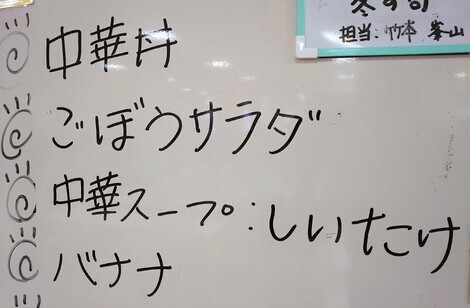 担当:竹本 峯山
中華丼
ごぼうサラダ
中華スープ:しいたけ
バナナ